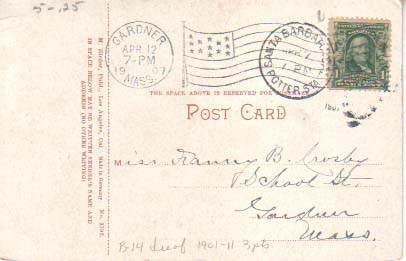 5-.25
GARDNER
APR 12
7-PM
1907
MASS.
SANTA BARBARA
APR 7
1 PM
POTTER STA
THE SPACE ABOVE IS RESERVED FOR
POST CARD
M. Rieder, Publ., Los Angeles, Cal. Made in Germany No.
IN SPACE BELOW MAY BE WRITTEN SENDER'S NAME AND
ADDRESS (NO OTHER WRITING)
Miss Fanny B. Crosby
School St.
Gardner
Mass.
1901-11 3pts